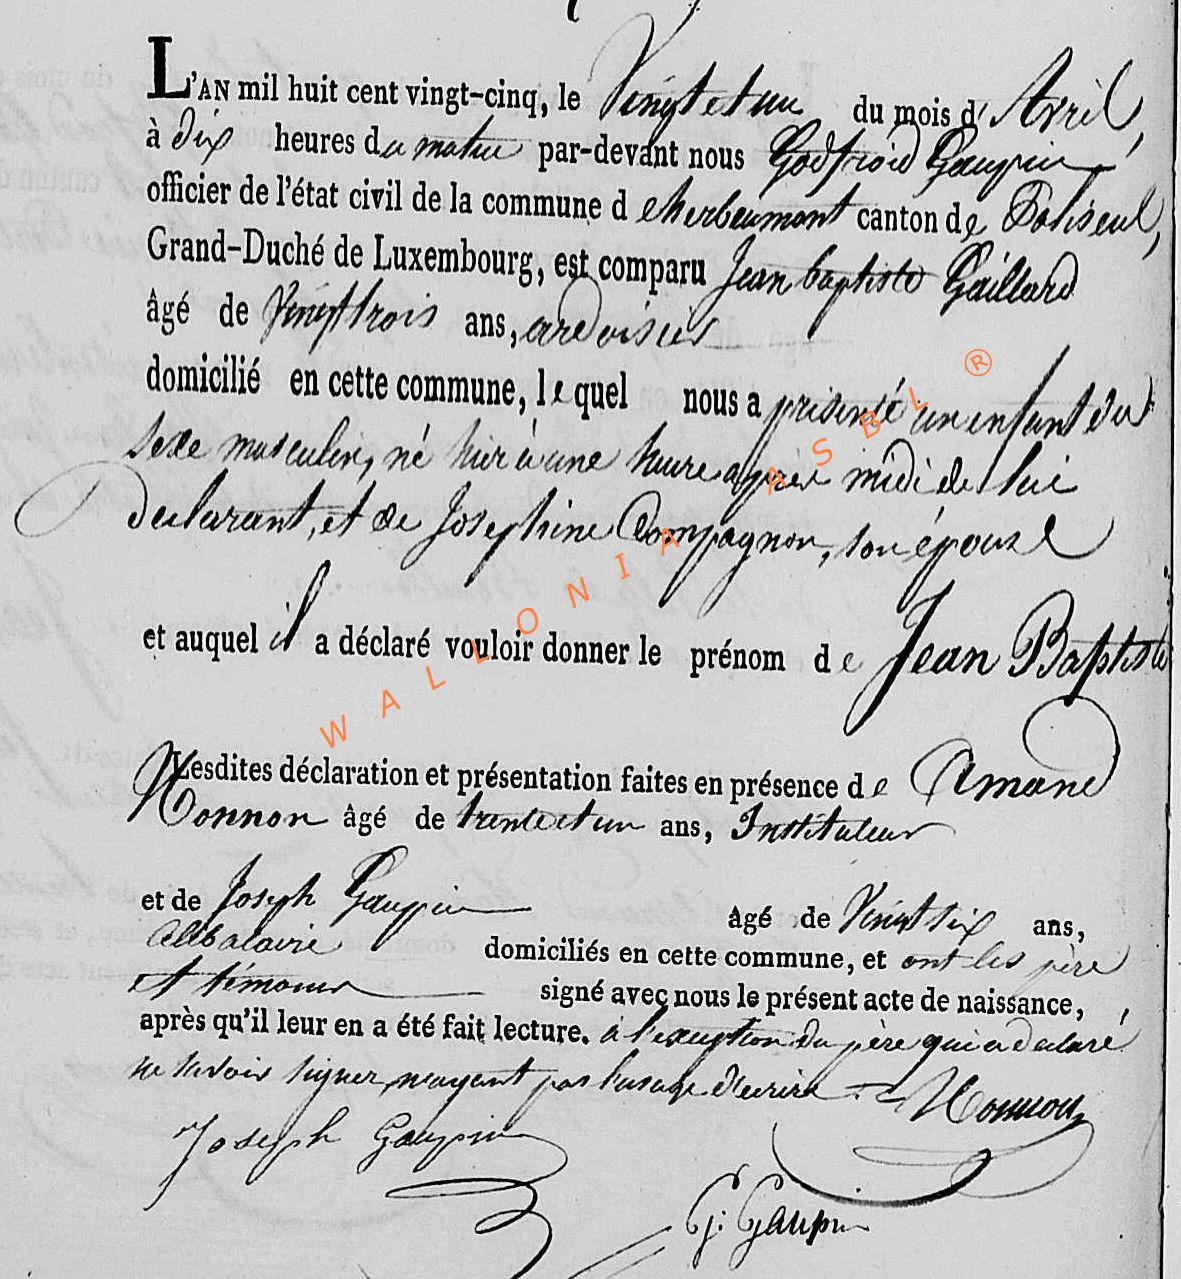 L'AN mil huit cent vingt-cinq, le Vingt et un du mois d' Avril,
à dix heures du matin par-devant nous Godfroid Gaupin,
officier de l'état civil de la commune d'herbeumont canton de Paliseul,
Grand-Duché de Luxembourg, est comparu Jean baptiste Gaillard
âgé de Vingt trois ans, ardoisier
domicilié en cette commune, lequel nous a présenté un enfant du
sexe masculin, né hier à une heure après midi de lui
declarant, et de Josephine Compagnon, son épouse
et auquel il a déclaré vouloir donner le prénom de Jean Baptiste
Lesdites déclaration et présentation faites en présence de Amand
Nonnon âgé de trente et un ans, Instituteur
et de Joseph Gaupin âgé de Vingt six ans,
domiciliés en cette commune, et ont les père
et témoins signé avec nous le présent acte de naissance,
après qu'il leur en a été fait lecture. à l'exception du père qui a declaré
ne savoir signer, n'ayant pas l'usage d'ecrire. Nonnon
Joseph Gaupin
G: Gaupin
WALLONIA ASBL ®